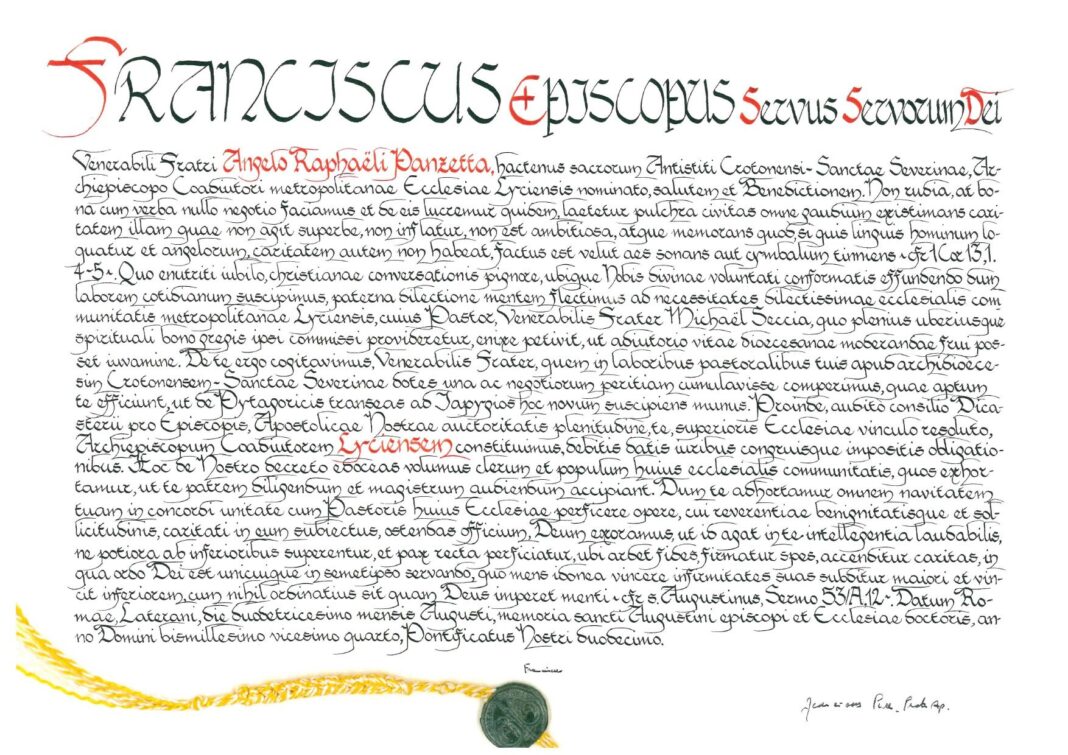 FRANCISCUS EPISCOPUS Servus Servorum Dei
Venerabili Fratri Angelo Raphaëli Panzetta, hactenus sacrorum Antistiti Crotonensi-Sanctae Severinae, Ar-
chiepiscopo Coadiutori metropolitanae Ecclesiae Lyciensis nominato, salutem et Benedictionem. Non rudia, at bo-
na cum verba nullo negotio faciamus et de eis lucremur quidem, laetetur pulchra civitas omne gaudium existimans cari-
tatem illam quae non agit superbe, non inflatur, non est ambitiosa, atque memorans quod, si quis linguis hominum lo-
quatur et angelorum, caritatem autem non habeat, factus est velut aes sonans aut cymbalum tinniens - cfr 1 Cor 13,1.
4-5 -. Quo enutriti iubilo, christianae conversationis pignore, ubique Nobis divinae voluntati conformatis effundendo dum
laborem cotidianum suscipimus, paterna dilectione mentem flectimus ad necessitates dilectissimae ecclesialis com
munitatis metropolitanae Lyciensis, cuius Pastor, Venerabilis Frater Michaël Seccia, quo plenius uberiusque
spirituali bono gregis ipsi commissi provideretur, enixe petivit, ut adiutorio vitae dioecesanae moderandae frui pos-
set iuvamine. De te ergo cogitavimus, Venerabilis Frater, quem in laboribus pastoralibus tuis apud archidioece-
sin Crotonensem-Sanctae Severinae dotes una ac negotiorum peritiam cumulavisse comperimus, quae aptum
te efficiunt, ut de Pytagoricis transeas ad Iapygios hoc novum suscipiens munus. Proinde, audito consilio Dica-
sterii pro Episcopis, Apostolicae Nostrae auctoritatis plenitudine, te, superioris Ecclesiae vinculo resoluto,
Archiepiscopum Coadiutorem Lyciensem constituimus, debitis datis iuribus congruisque impositis obligatio-
nibus. Hoc de Nostro decreto edoceas volumus clerum et populum huius ecclesialis communitatis, quos exhor-
tamur, ut te patrem diligendum et magistrum audiendum accipiant. Dum te adhortamur omnem navitatem
tuam in concordi unitate cum Pastoris huius Ecclesiae perficere opere, cui reverentiae benignitatisque et sol-
licitudinis, caritati in eum subiectus, ostendas officium, Deum exoramus, ut id agat in te intellegentia laudabilis,
ne potiora ab inferioribus superentur, et pax recta perficiatur, ubi ardet fides, firmatur spes, accenditur caritas, in
qua ordo Dei est unicuique in semetipso servando, quo mens idonea vincere infirmitates suas subditur maiori et vin-
cit inferiorem, cum nihil ordinatius sit quam Deus imperet menti - cfr s. Augustinus, Sermo 53/A,12 -. Datum Ro-
mae, Laterani, die duodetricesimo mensis Augusti, memoria sancti Augustini episcopi et Ecclesiae doctoris, an-
no Domini bismillesimo vicesimo quarto, Pontificatus Nostri duodecimo.
Franciscus